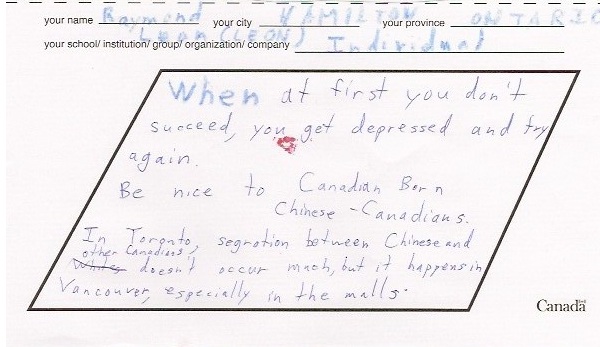 your name Raymond your city HAMILTON your province ONTARIO
Leon (LEON)
your school/ institution/ group/ organization/ company Individual
When at first you don't
succeed, you get depressed and try
again.
Be nice to Canadian Born
Chinese-Canadians.
In Toronto, segrotion between Chinese and
other Canadians
Whites doesn't occur much, but it happens in
Vancouver, especially in the malls.
Canada